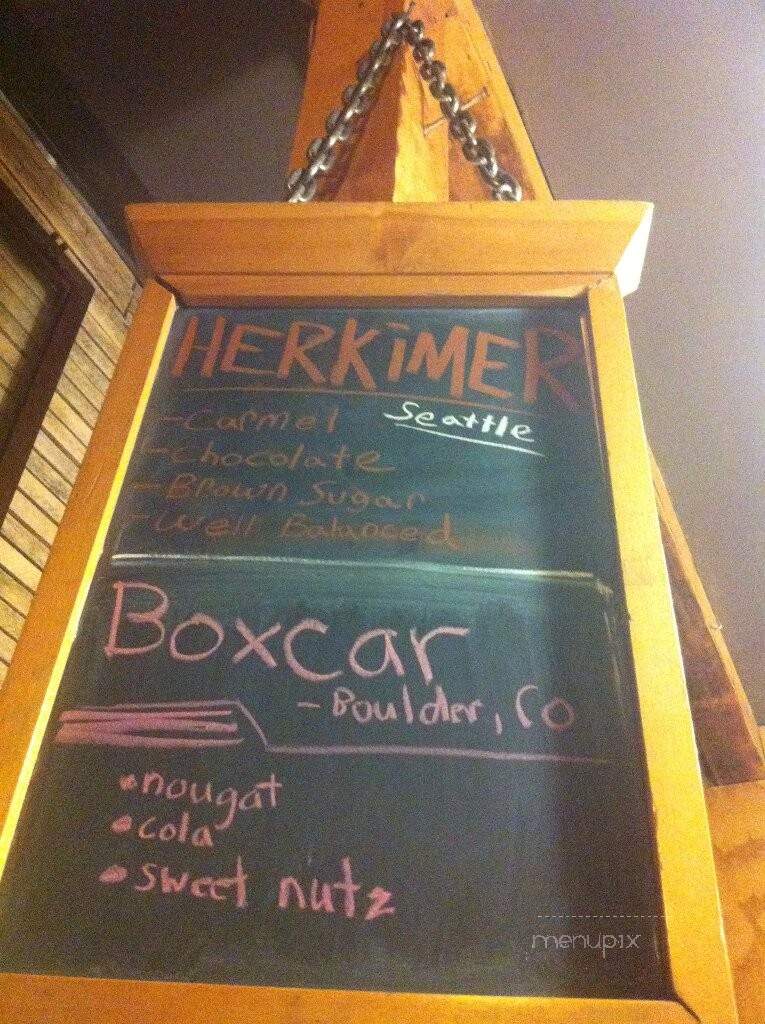 HERKiMER
Seattle
- Carmel
- Chocolate
- Brown Sugar
- Well Balanced
Boxcar
- Boulder, CO
• nougat
• cola
• sweet nutz
menupix